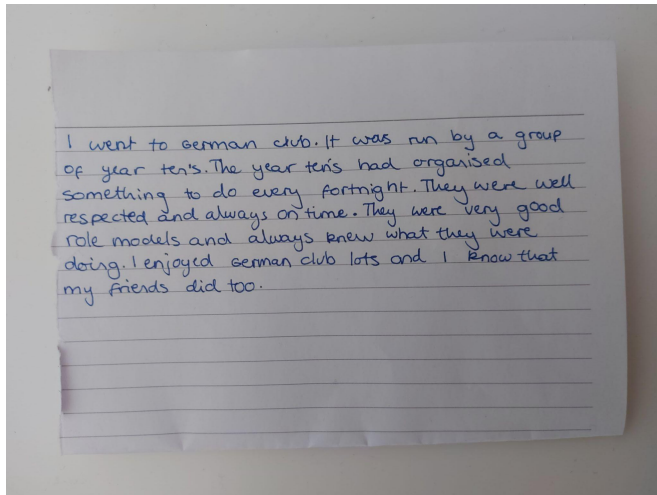 I went to German club. It was run by a group
of year ten's. The year ten's had organised
something to do every fortnight. They were well
respected and always on time. They were very good
role models and always knew what they were
doing. I enjoyed German club lots and I know that
my friends did too.